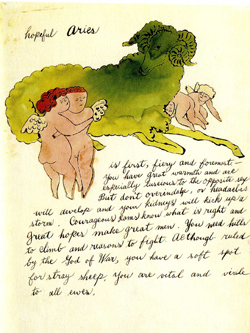 hopeful Aries
is first, fiery and foremost—
You have great warmth and are
especially luscious to the opposite sex
But don't overindulge, or headaches
will develop and your kidneys will kick up a
storm. Courageous Rams know what is right and
great hopes make great men. You need hills
to climb and reasons to fight. Although ruled
by the God of War, you have a soft spot
for stray sheep. You are vital and virile
to all ewes.